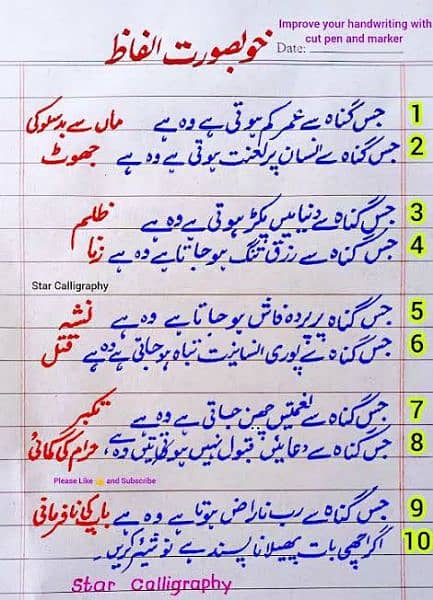 Improve your handwriting with
cut pen and marker
خوبصورت الفاظ
Date:
1 جس گناہ سے عمر کم ہوتی ہے وہ ہے ماں سے بدسلوکی
2 جس گناہ سے انسان پر لعنت ہوتی ہے وہ ہے جھوٹ
3 جس گناہ سے دنیا میں پکڑ ہوتی ہے وہ ہے ظلم
4 جس گناہ سے رزق تنگ ہو جاتا ہے وہ ہے زنا
Star Calligraphy
5 جس گناہ پر پردہ فاش ہو جاتا ہے وہ ہے نشہ
6 جس گناہ سے پوری انسانیت تباہ ہو جاتی ہے وہ ہے قتل
7 جس گناہ سے نعمتیں چھن جاتی ہے وہ ہے تکبر
8 جس گناہ سے دعائیں قبول نہیں ہوتی وہ ہے، حرام کی کمائی
Please Like 👍 and Subscribe
9 جس گناہ سے رب ناراض ہوتا ہے وہ ہے باپ کی نافرمانی
10 اگر اچھی بات پھیلانا پسند ہے تو شیئر کریں۔
Star Calligraphy